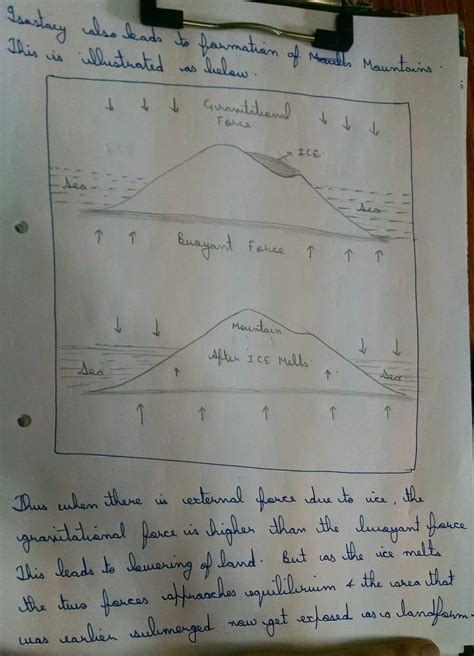 Isostacy also leads to formation of Mountains.
This is illustrated as below.
Gravitational
Force
ICE
Sea
Sea
Buoyant Force
Mountain
After ICE Melts
Sea
Sea
Thus when there is external force due to ice, the
gravitational force is higher than the buoyant force
This leads to lowering of land. But as the ice melts
the two forces approaches equilibrium & the area that
was earlier submerged now get exposed as a landform